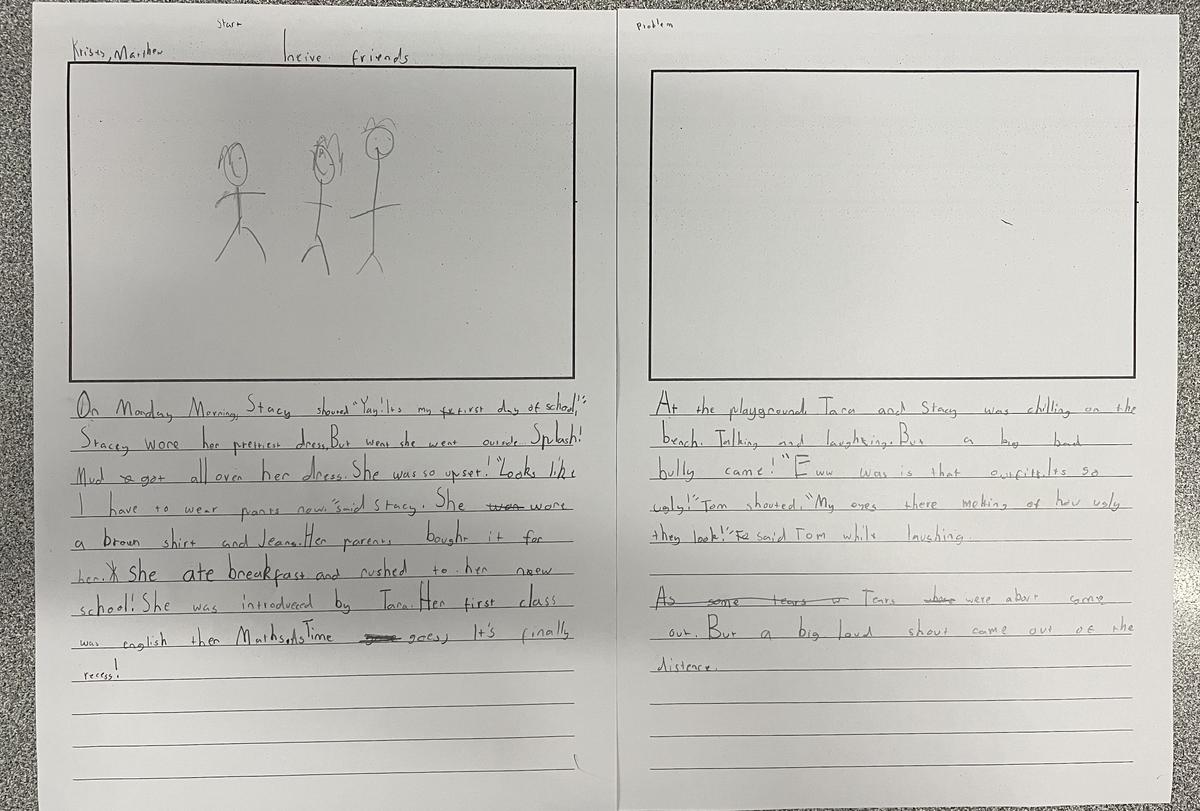 Start
Kristy, Matthew
friends
On Monday Morning, Stacy shouted "Yay! Its my first day of school!"
Stacey wore her prettiest dress. But went she went outside Splash!
Mud got all over her dress. She was so upset! "Looks like
I have to wear pants now." said Stacy. She wore
a brown shirt and Jeans. Her parents bought it for
her. She ate breakfast and rushed to her new
school! She was introduced by Tara. Her first class
was english then Maths. As Time goes, It's finally
recess!
Problem
At the playground, Tara and Stacy was chilling on the
bench. Talking and laughing. But a big bad
bully came! "Eww was is that outfit. Its so
ugly!" Tom shouted. "My eyes there melting of how ugly
they look!" said Tom while laushing.
As some tears Tears were about come
out. But a big loud shout came out of the
distence.